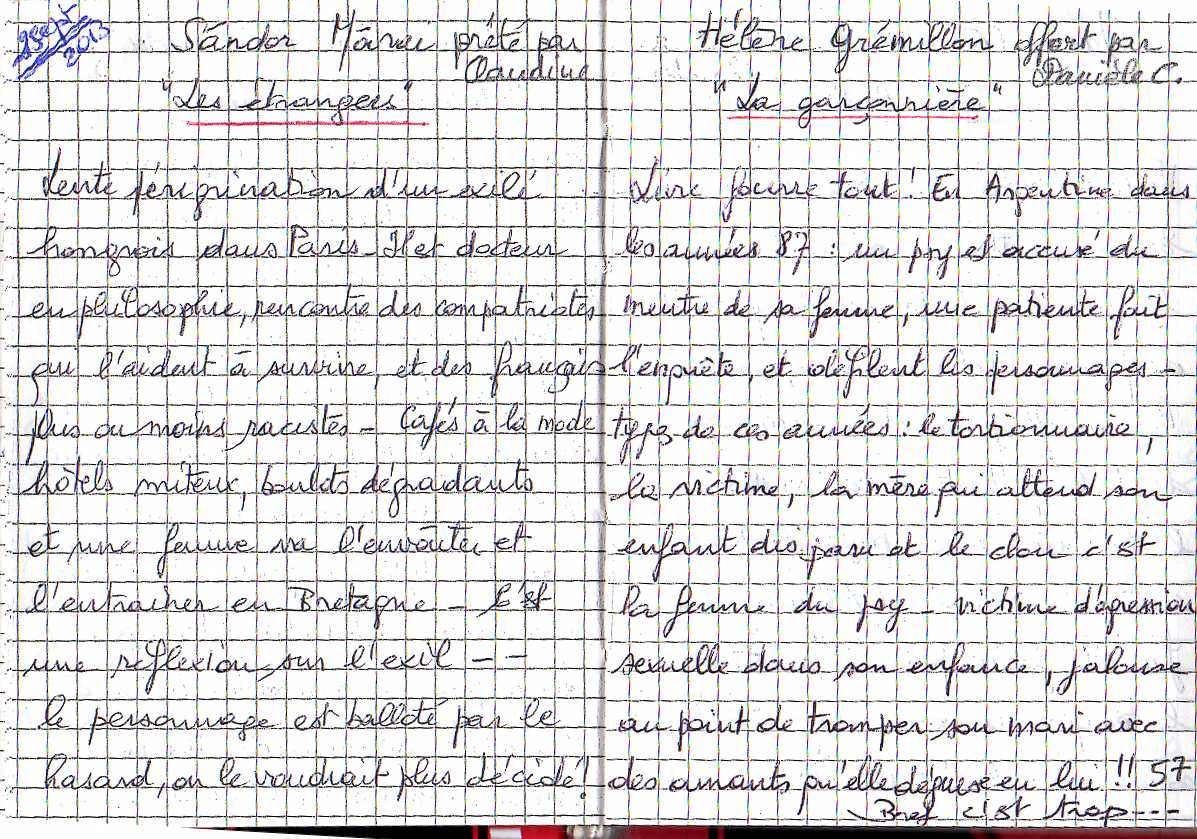 25 sept
2013
Sándor Márai prêté par
Claudine
"Les étrangers"
Lente pérégrination d'un exilé
hongrois dans Paris. Il est docteur
en philosophie, rencontre des compatriotes
qui l'aident à survivre, et des français
plus ou moins racistes - Cafés à la mode
hôtels miteux, boulots dégradants
et une femme va l'envoûter et
l'entraîner en Bretagne - C'est
une réflexion sur l'exil - -
le personnage est balloté par le
hasard, on le voudrait plus décidé!
Hélène Grémillon offert par
Danièle C.
"La garçonnière"
Livre fourre tout! En Argentine dans
les années 87 : un psy est accusé du
meutre de sa femme, une patiente fait
l'enquête, et défilent les personnages -
type de ces années : le tortionnaire,
la victime, la mère qui attend son
enfant disparu et le clou c'est
la femme du psy - victime d'agression
sexuelle dans son enfance, jalouse
au point de tromper son mari avec
des amants qu'elle déguise en lui !! 57
Bref c'est trop ---